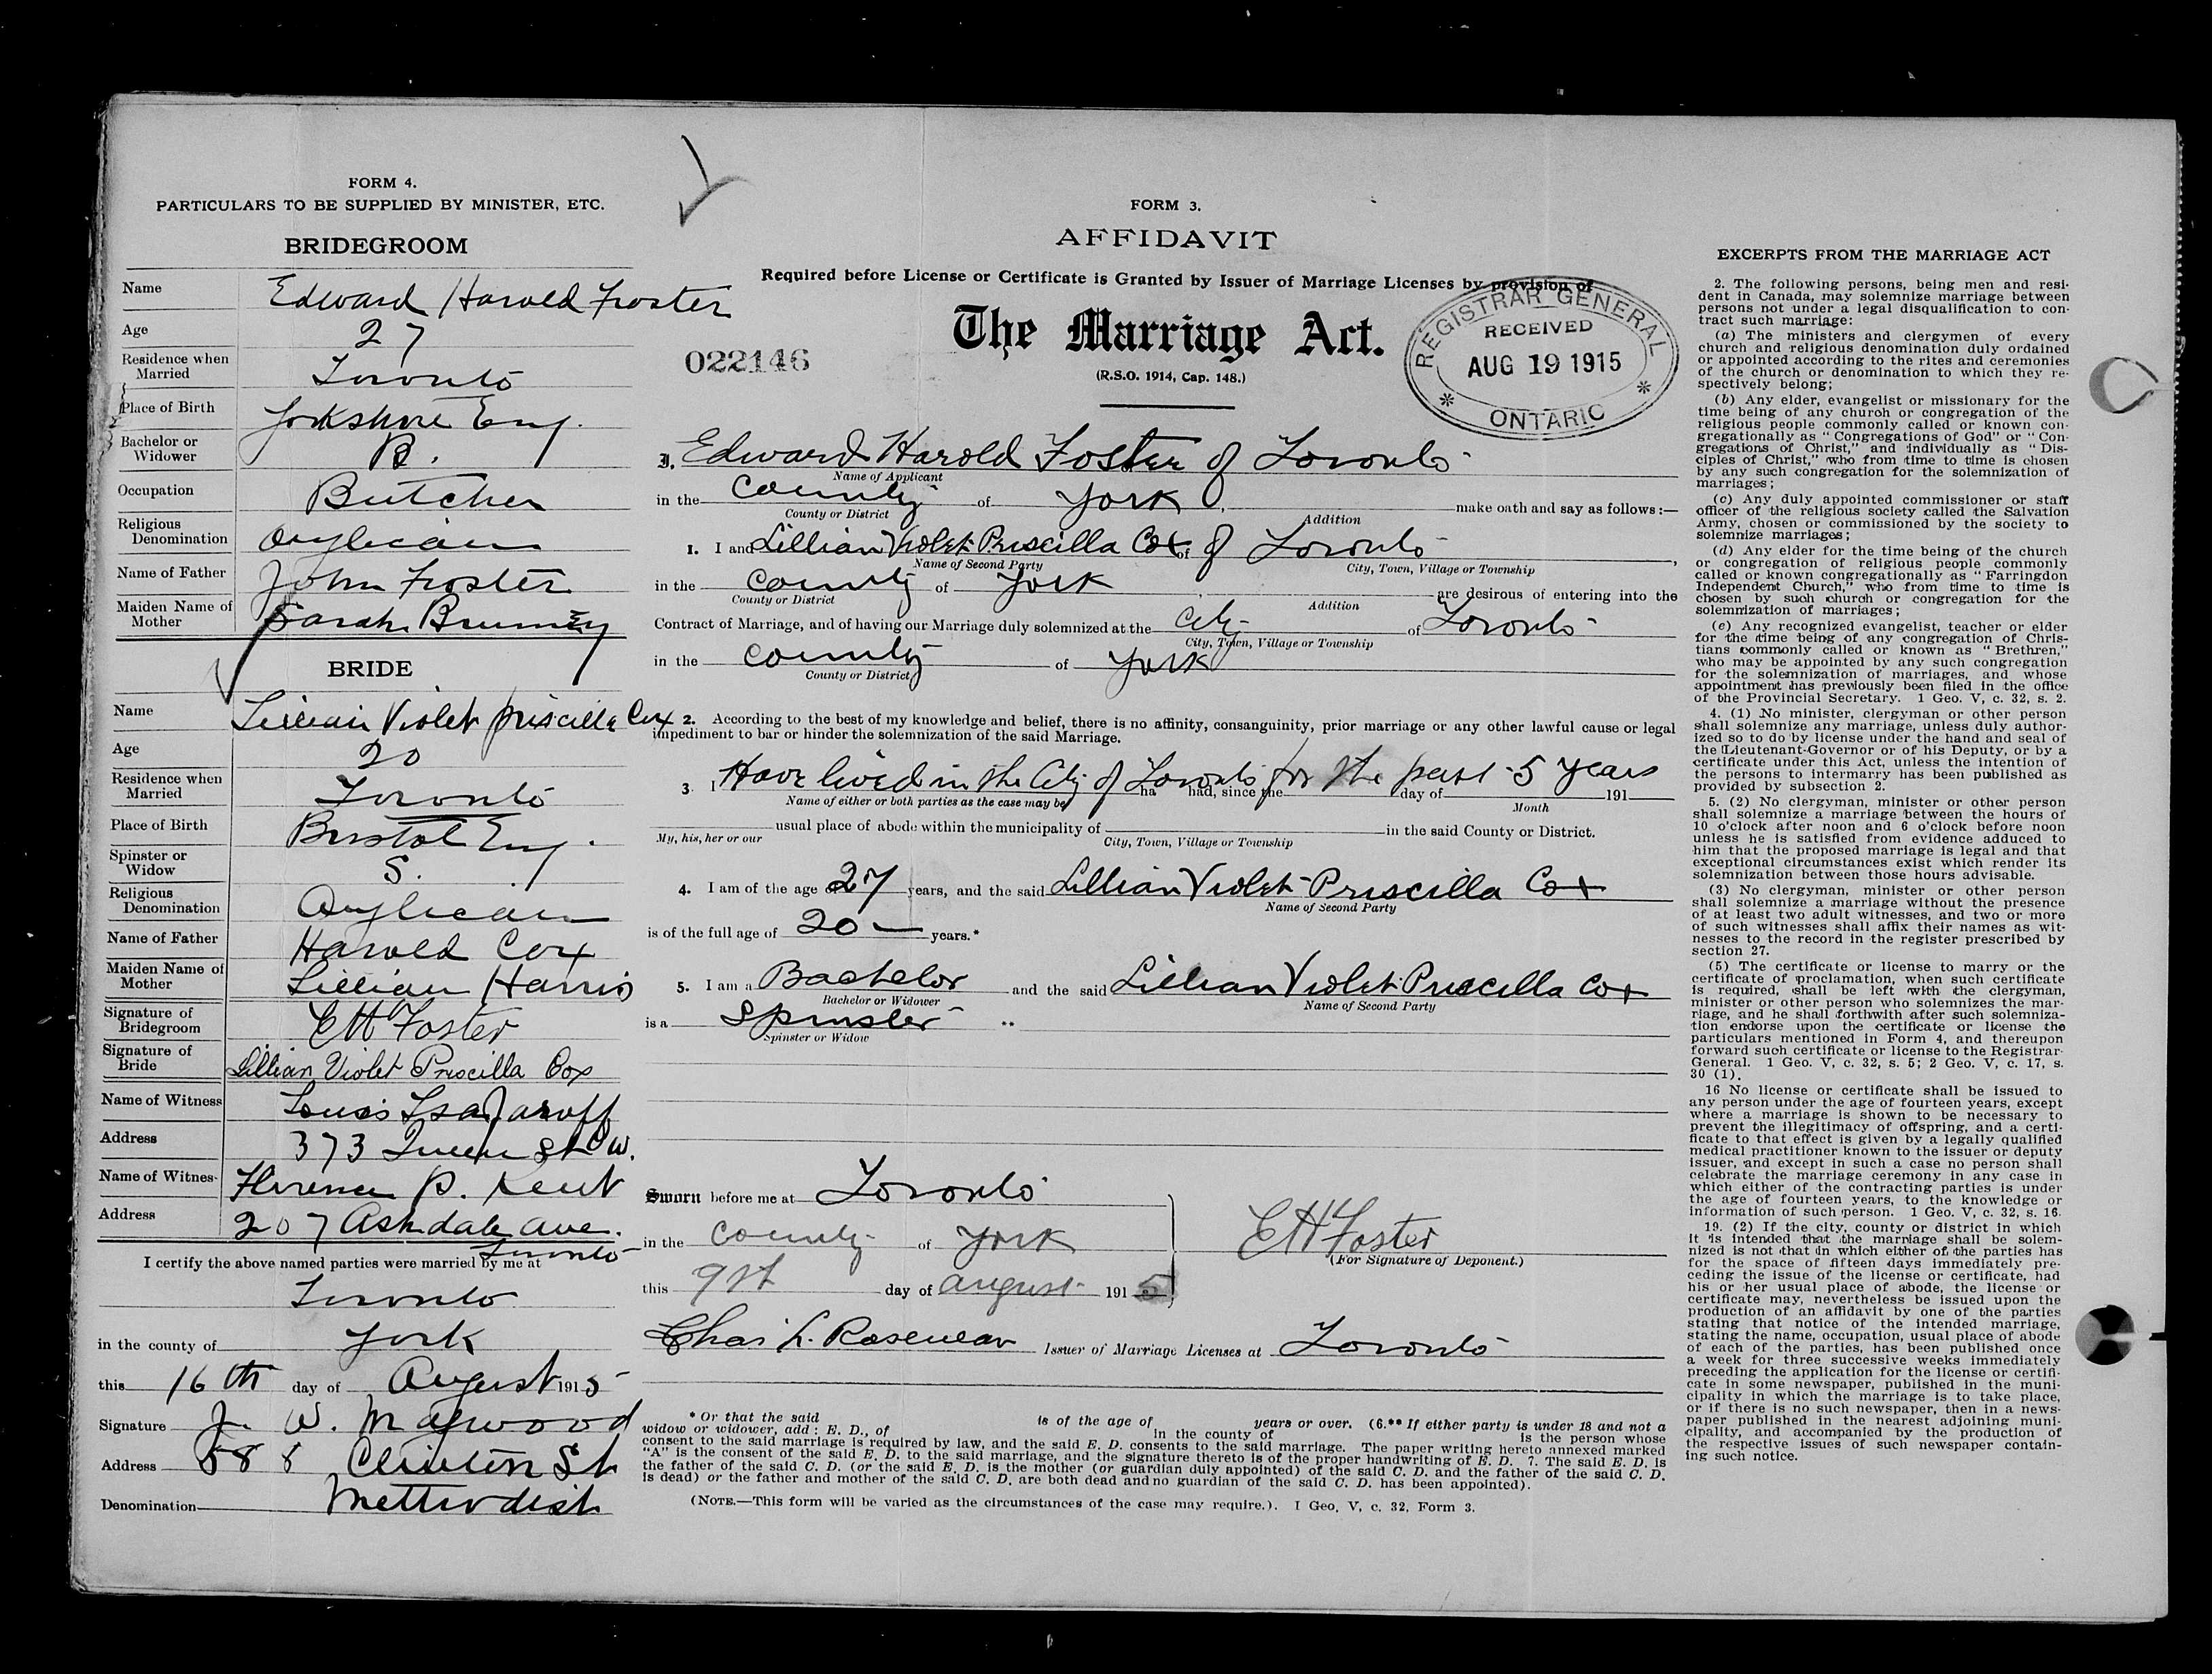 FORM 4.
PARTICULARS TO BE SUPPLIED BY MINISTER, ETC.
BRIDEGROOM
Name Edward Harold Froster
Age 27
Residence when Married Toronto
Place of Birth Yorkshire Eng.
Bachelor or Widower B.
Occupation Butcher
Religious Denomination Anglican
Name of Father John Froster
Maiden Name of Mother Sarah
BRIDE
Name Lillian Violet Priscilla Cox
Age 20
Residence when Married Toronto
Place of Birth Bristol Eng.
Spinster or Widow S.
Religious Denomination Anglican
Name of Father Harold Cox
Maiden Name of Mother Lillian Harris
Signature of Bridegroom E H Foster
Signature of Bride Lillian Violet Priscilla Cox
Name of Witness Louis
Address 373 Queen St W.
Name of Witnes- Florence P. Kent
Address 207 Ashdale ave.
Toronto
I certify the above named parties were married by me at
Toronto
in the county of York
this 16th day of August 1915
Signature J. W. Magwood
Address 588 Clinton St
Denomination Methodist
FORM 3.
AFFIDAVIT
Required before License or Certificate is Granted by Issuer of Marriage Licenses by provision of
The Marriage Act.
(R.S.O. 1914, Cap. 148.)
022146
REGISTRAR GENERAL
RECEIVED
AUG 19 1915
* ONTARIO *
I, Edward Harold Foster of Toronto
Name of Applicant
in the County of York, make oath and say as follows:—
County or District Addition
1. I and Lillian Violet Priscilla Cox of of Toronto,
Name of Second Party City, Town, Village or Township
in the County of York are desirous of entering into the
County or District Addition
Contract of Marriage, and of having our Marriage duly solemnized at the City of Toronto
City, Town, Village or Township
in the County of York
County or District
2. According to the best of my knowledge and belief, there is no affinity, consanguinity, prior marriage or any other lawful cause or legal
impediment to bar or hinder the solemnization of the said Marriage.
3. I Have lived in the City of Toronto for the past 5 years
ha had, since the day of 191
Name of either or both parties as the case may be Month
usual place of abode within the municipality of in the said County or District.
My, his, her or our City, Town, Village or Township
4. I am of the age of 27 years, and the said Lillian Violet Priscilla Cox
Name of Second Party
is of the full age of 20 — years.*
5. I am a Bachelor and the said Lillian Violet Priscilla Cox
Bachelor or Widower Name of Second Party
is a Spinster
Spinster or Widow
Sworn before me at Toronto
in the County of York
this 9th day of August 1915
E H Foster
(For Signature of Deponent.)
Chas L. Issuer of Marriage Licenses at Toronto
* Or that the said is of the age of years or over. (6.** If either party is under 18 and not a
widow or widower, add: E. D., of in the county of is the person whose
consent to the said marriage is required by law, and the said E. D. consents to the said marriage. The paper writing hereto annexed marked
"A" is the consent of the said E. D. to the said marriage, and the signature thereto is of the proper handwriting of E. D. 7. The said E. D. is
the father of the said C. D. (or the said E. D. is the mother (or guardian duly appointed) of the said C. D. and the father of the said C. D.
is dead) or the father and mother of the said C. D. are both dead and no guardian of the said C. D. has been appointed).
(NOTE.—This form will be varied as the circumstances of the case may require.). 1 Geo. V, c. 32, Form 3.
EXCERPTS FROM THE MARRIAGE ACT
2. The following persons, being men and resi-
dent in Canada, may solemnize marriage between
persons not under a legal disqualification to con-
tract such marriage:
(a) The ministers and clergymen of every
church and religious denomination duly ordained
or appointed according to the rites and ceremonies
of the church or denomination to which they re-
spectively belong;
(b) Any elder, evangelist or missionary for the
time being of any church or congregation of the
religious people commonly called or known con-
gregationally as "Congregations of God" or "Con-
gregations of Christ," and individually as "Dis-
ciples of Christ," who from time to time is chosen
by any such congregation for the solemnization of
marriages;
(c) Any duly appointed commissioner or staff
officer of the religious society called the Salvation
Army, chosen or commissioned by the society to
solemnize marriages;
(d) Any elder for the time being of the church
or congregation of religious people commonly
called or known congregationally as "Farringdon
Independent Church," who from time to time is
chosen by such church or congregation for the
solemnization of marriages;
(e) Any recognized evangelist, teacher or elder
for the time being of any congregation of Chris-
tians commonly called or known as "Brethren,"
who may be appointed by any such congregation
for the solemnization of marriages, and whose
appointment has previously been filed in the office
of the Provincial Secretary. 1 Geo. V, c. 32, s. 2.
4. (1) No minister, clergyman or other person
shall solemnize any marriage, unless duly author-
ized so to do by license under the hand and seal of
the Lieutenant-Governor or of his Deputy, or by a
certificate under this Act, unless the intention of
the persons to intermarry has been published as
provided by subsection 2.
5. (2) No clergyman, minister or other person
shall solemnize a marriage between the hours of
10 o'clock after noon and 6 o'clock before noon
unless he is satisfied from evidence adduced to
him that the proposed marriage is legal and that
exceptional circumstances exist which render its
solemnization between those hours advisable.
(3) No clergyman, minister or other person
shall solemnize a marriage without the presence
of at least two adult witnesses, and two or more
of such witnesses shall affix their names as wit-
nesses to the record in the register prescribed by
section 27.
(5) The certificate or license to marry or the
certificate of proclamation, when such certificate
is required, shall be left with the clergyman,
minister or other person who solemnizes the mar-
riage, and he shall forthwith after such solemniza-
tion endorse upon the certificate or license the
particulars mentioned in Form 4, and thereupon
forward such certificate or license to the Registrar-
General. 1 Geo. V, c. 32, s. 5; 2 Geo. V, c. 17, s.
30 (1).
16 No license or certificate shall be issued to
any person under the age of fourteen years, except
where a marriage is shown to be necessary to
prevent the illegitimacy of offspring, and a certi-
ficate to that effect is given by a legally qualified
medical practitioner known to the issuer or deputy
issuer, and except in such a case no person shall
celebrate the marriage ceremony in any case in
which either of the contracting parties is under
the age of fourteen years, to the knowledge or
information of such person. 1 Geo. V, c. 32, s. 16.
19. (2) If the city, county or district in which
it is intended that the marriage shall be solem-
nized is not that in which either of the parties has
for the space of fifteen days immediately pre-
ceding the issue of the license or certificate, had
his or her usual place of abode, the license or
certificate may, nevertheless be issued upon the
production of an affidavit by one of the parties
stating that notice of the intended marriage,
stating the name, occupation, usual place of abode
of each of the parties, has been published once
a week for three successive weeks immediately
preceding the application for the license or certifi-
cate in some newspaper, published in the muni-
cipality in which the marriage is to take place,
or if there is no such newspaper, then in a news-
paper published in the nearest adjoining muni-
cipality, and accompanied by the production of
the respective issues of such newspaper contain-
ing such notice.